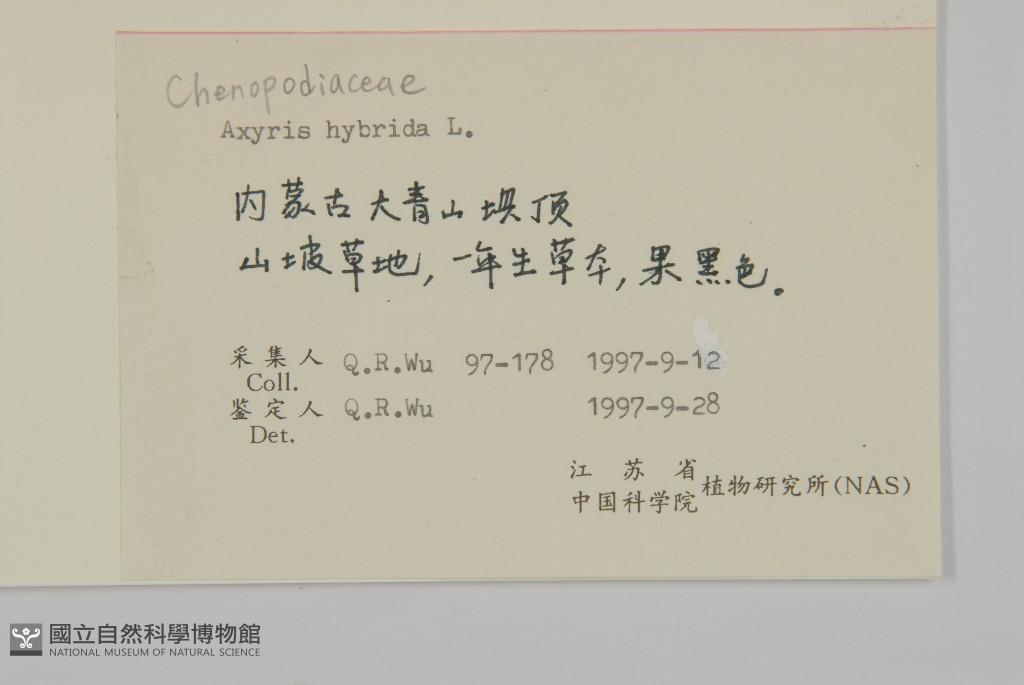 Chenopodiaceae
Axyris hybrida L.
内蒙古大青山坝顶
山坡草地,一年生草本,果黑色。
采集人 Q.R.Wu 97-178 1997-9-12
Coll.
鉴定人 Q.R.Wu 1997-9-28
Det.
江苏省
中国科学院 植物研究所(NAS)
國立自然科學博物館
NATIONAL MUSEUM OF NATURAL SCIENCE